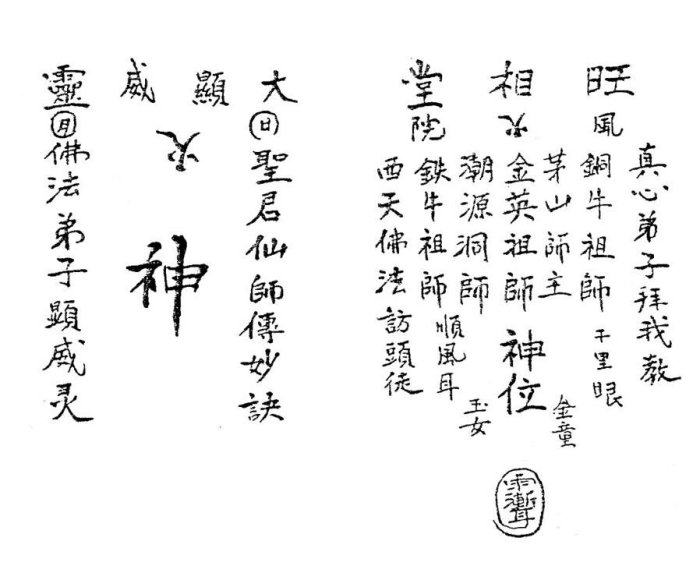 旺相堂
風火院
真心弟子拜我教
銅牛祖師 千里眼
茅山師主 金童
金英祖師 神位
潮源洞師 玉女
鉄牛祖師 順風耳
西天佛法訪頭徒
大顯威靈
日 聖君仙師傳妙訣
火 神
月 佛法弟子顯威灵